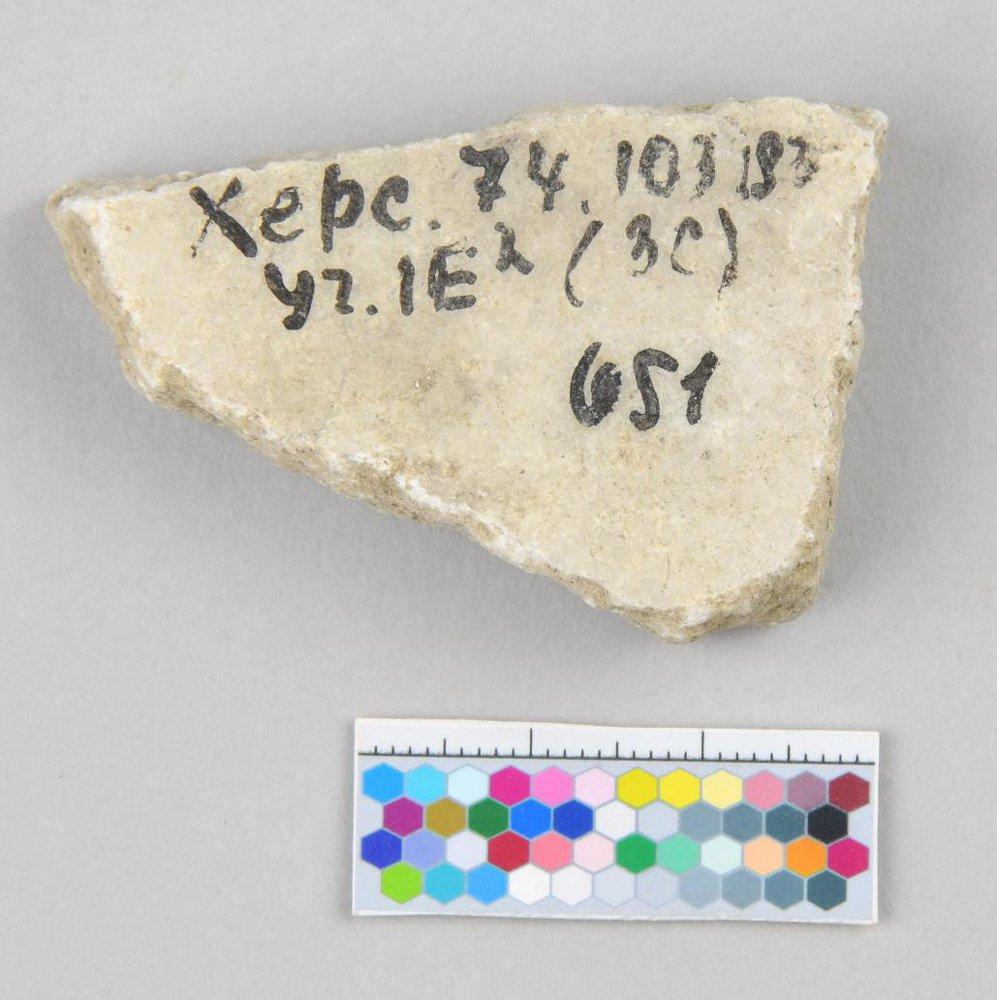 Херс. 74. 103183
уг. IE² (3C)
651